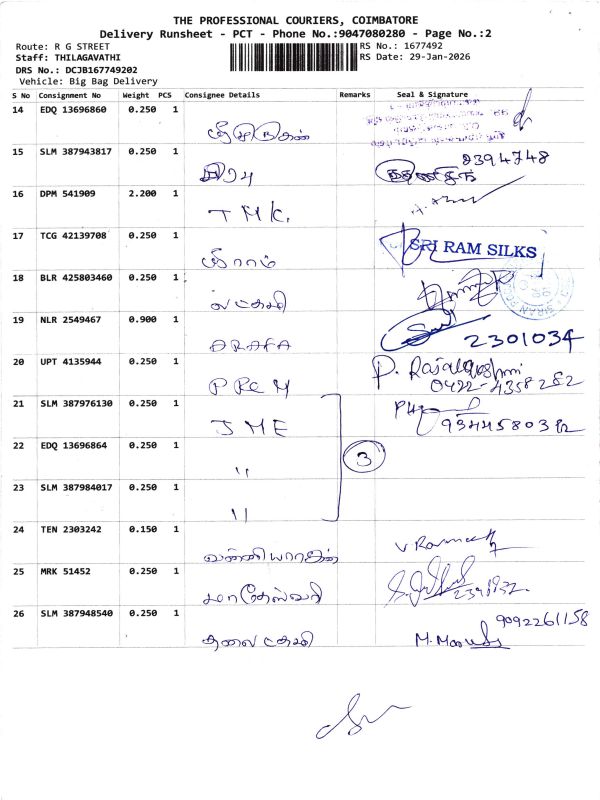 THE PROFESSIONAL COURIERS, COIMBATORE
Delivery Runsheet - PCT - Phone No.:9047080280 - Page No.:2
Route: R G STREET
RS No.: 1677492
Staff: THILAGAVATHI
RS Date: 29-Jan-2026
DRS No.: DCJB167749202
Vehicle: Big Bag Delivery
S No Consignment No Weight PCS Consignee Details Remarks Seal & Signature
14 EDQ 13696860 0.250 1
15 SLM 387943817 0.250 1
2394748
16 DPM 541909 2.200 1
T M K.
17 TCG 42139708 0.250 1
ஸ்ரீராம்
SRI RAM SILKS
18 BLR 425803460 0.250 1
லட்சுமி
19 NLR 2549467 0.900 1
ARAFA
2301034
20 UPT 4135944 0.250 1
PREM
P. Rajalakshmi
0422-4358282
21 SLM 387976130 0.250 1
JME
22 EDQ 13696864 0.250 1
"
3
23 SLM 387984017 0.250 1
"
24 TEN 2303242 0.150 1
25 MRK 51452 0.250 1
மாதேஸ்வரி
26 SLM 387948540 0.250 1
9092261158